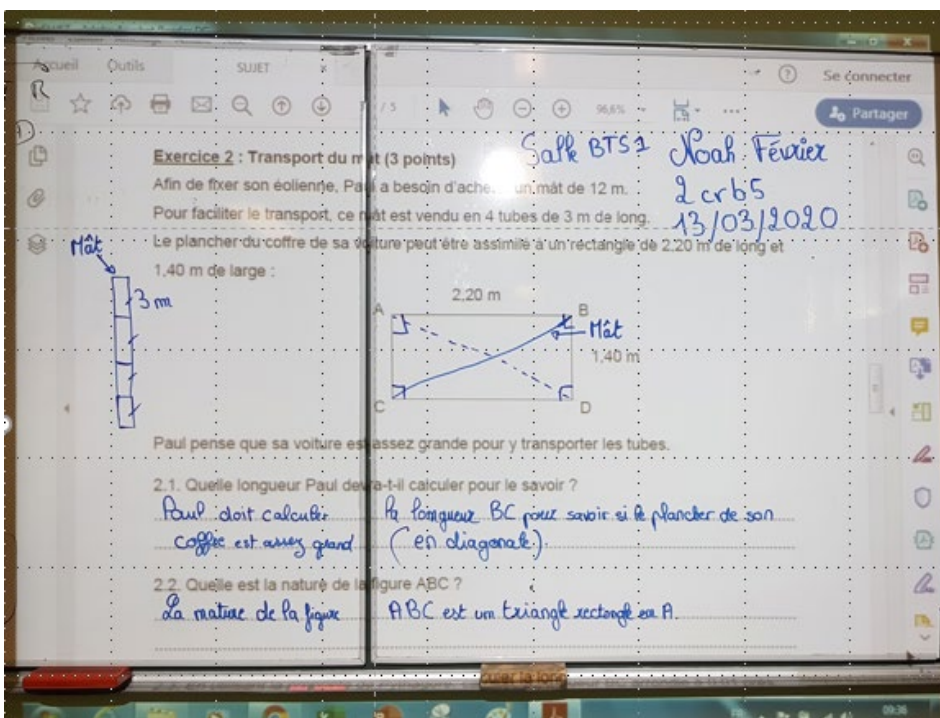 Accueil Outils SUJET ×
? Se connecter
/ 5 96,6% ... Partager
Salle BTS1 Noah Février
2 crb5
13/03/2020
Exercice 2 : Transport du mât (3 points)
Afin de fixer son éolienne, Paul a besoin d'ache un mât de 12 m.
Pour faciliter le transport, ce mât est vendu en 4 tubes de 3 m de long.
Le plancher du coffre de sa voiture peut être assimilé à un rectangle de 2,20 m de long et
1,40 m de large :
Mât
3 m
2,20 m
A B
Mât
1,40 m
C D
Paul pense que sa voiture est assez grande pour y transporter les tubes.
2.1. Quelle longueur Paul devra-t-il calculer pour le savoir ?
Paul doit calculer la longueur BC pour savoir si le plancher de son
coffre est assez grand (en diagonale).
2.2. Quelle est la nature de la figure ABC ?
La nature de la figure ABC est un triangle rectangle en A.
09:36